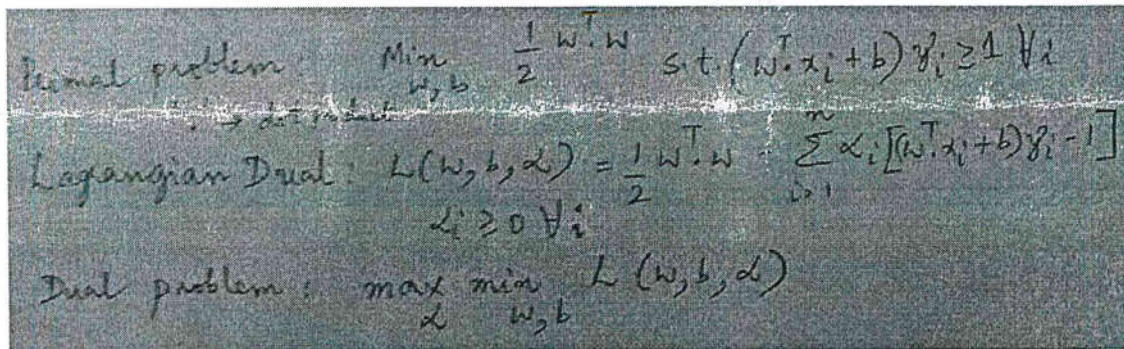 Primal problem: Min w,b 1/2 wᵀ.w s.t. (wᵀ.xᵢ + b) yᵢ ≥ 1 ∀i
'.' → dot product
Lagrangian Dual: L(w, b, α) = 1/2 wᵀ.w - Σⁿᵢ₌₁ αᵢ [(wᵀ.xᵢ + b) yᵢ - 1]
αᵢ ≥ 0 ∀i
Dual problem: max α min w,b L (w, b, α)